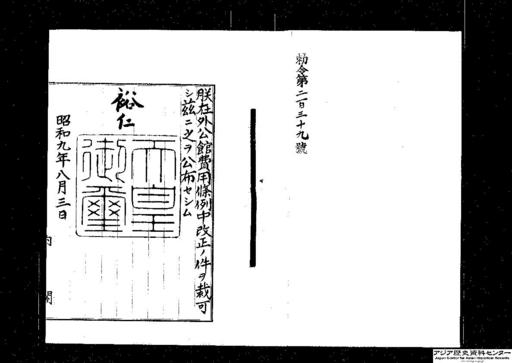 勅令第二百三十九號
朕在外公館費用條例中改正ノ件ヲ裁可
シ茲ニ之ヲ公布セシム
裕仁
天皇
御璽
昭和九年八月三日
内閣
アジア歴史資料センター
Japan Center for Asian Historical Records